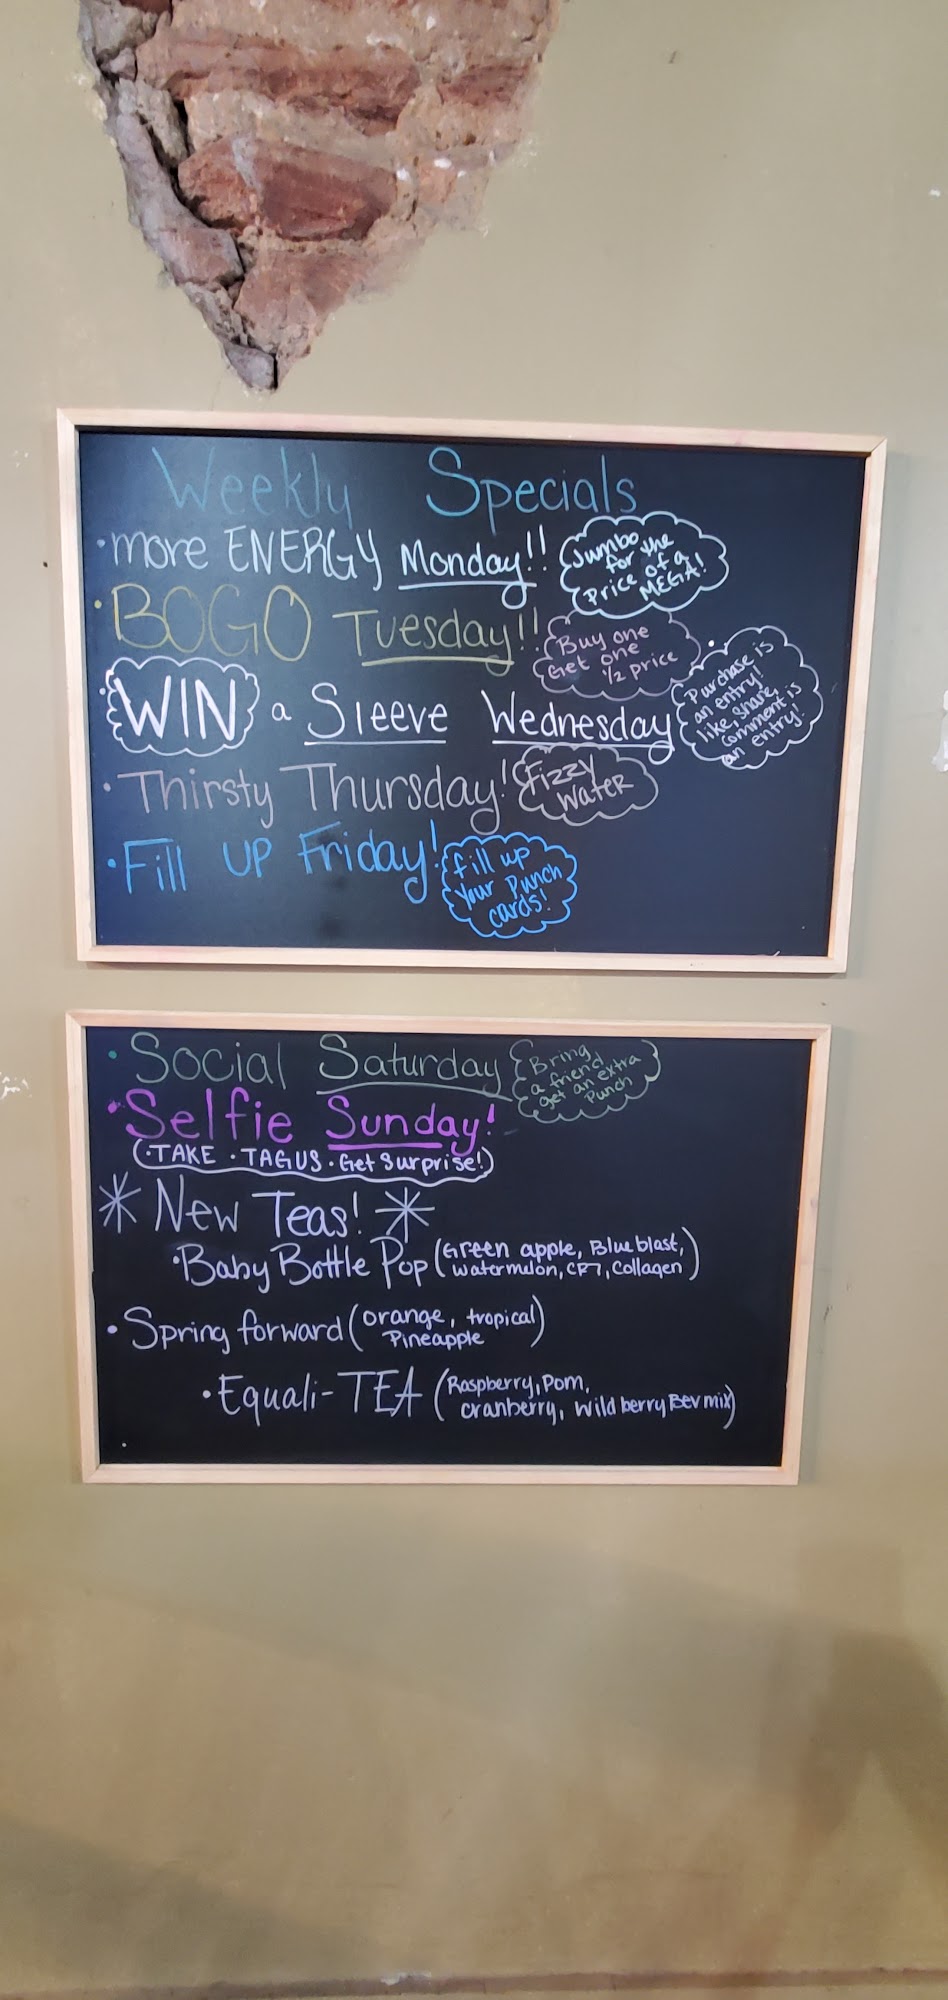 Weekly Specials
• more ENERGY Monday!!
Jumbo
for the
Price of a
MEGA!
• BOGO Tuesday!!
Buy one
Get one
1/2 price
• WIN a Sleeve Wednesday
Purchase is
an entry!
like, share,
comment is
an entry!
• Thirsty Thursday!
Fizzy
Water
• Fill UP Friday!
fill up
your Punch
cards!
• Social Saturday
Bring
a friend
get an extra
Punch
• Selfie Sunday!
(• TAKE • TAG US • Get Surprise!)
* New Teas! *
• Baby Bottle Pop (Green apple, Blue blast,
watermelon, CR7, Collagen)
• Spring forward (orange, tropical
Pineapple)
• Equali-TEA (Raspberry, Pom,
cranberry, Wild berry Bev mix)